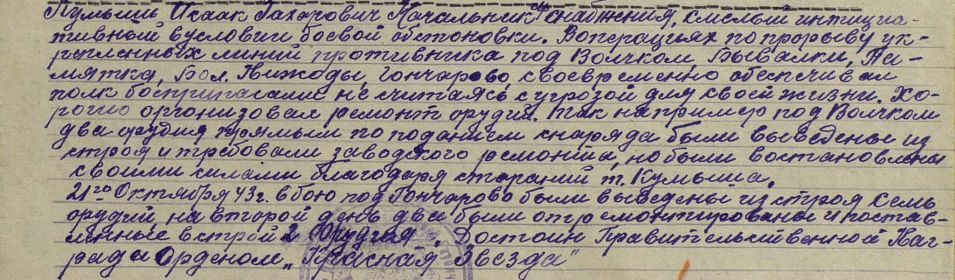 Кумыш Исаак Захарович Начальник снабжения, смелый инициа-
тивный в условии боевой обстоновки. В операциях по прорыву ук-
репленных линий противника под Волчком, Бывалки, Па-
мятка, Бол. Гвижоды, Гончарово, своевременно обеспечивал
полк боеприпасами не считаясь с угрозой для своей жизни. Хо-
рошо организовал ремонт орудий. Так например под Волчком
два орудия прямым попаданием снаряда были выведены из
строя и требовали заводского ремонта, но были востановлены
своими силами благодаря стараний т. Кумыша.
21го Октября 43г. в бою под Гончарово были выведены из строя семь
орудий, на второй день два были отремонтированы и постав-
ленные в строй 2 орудия. Достоин Правительственной Наг-
рады Орденом „Красная Звезда"